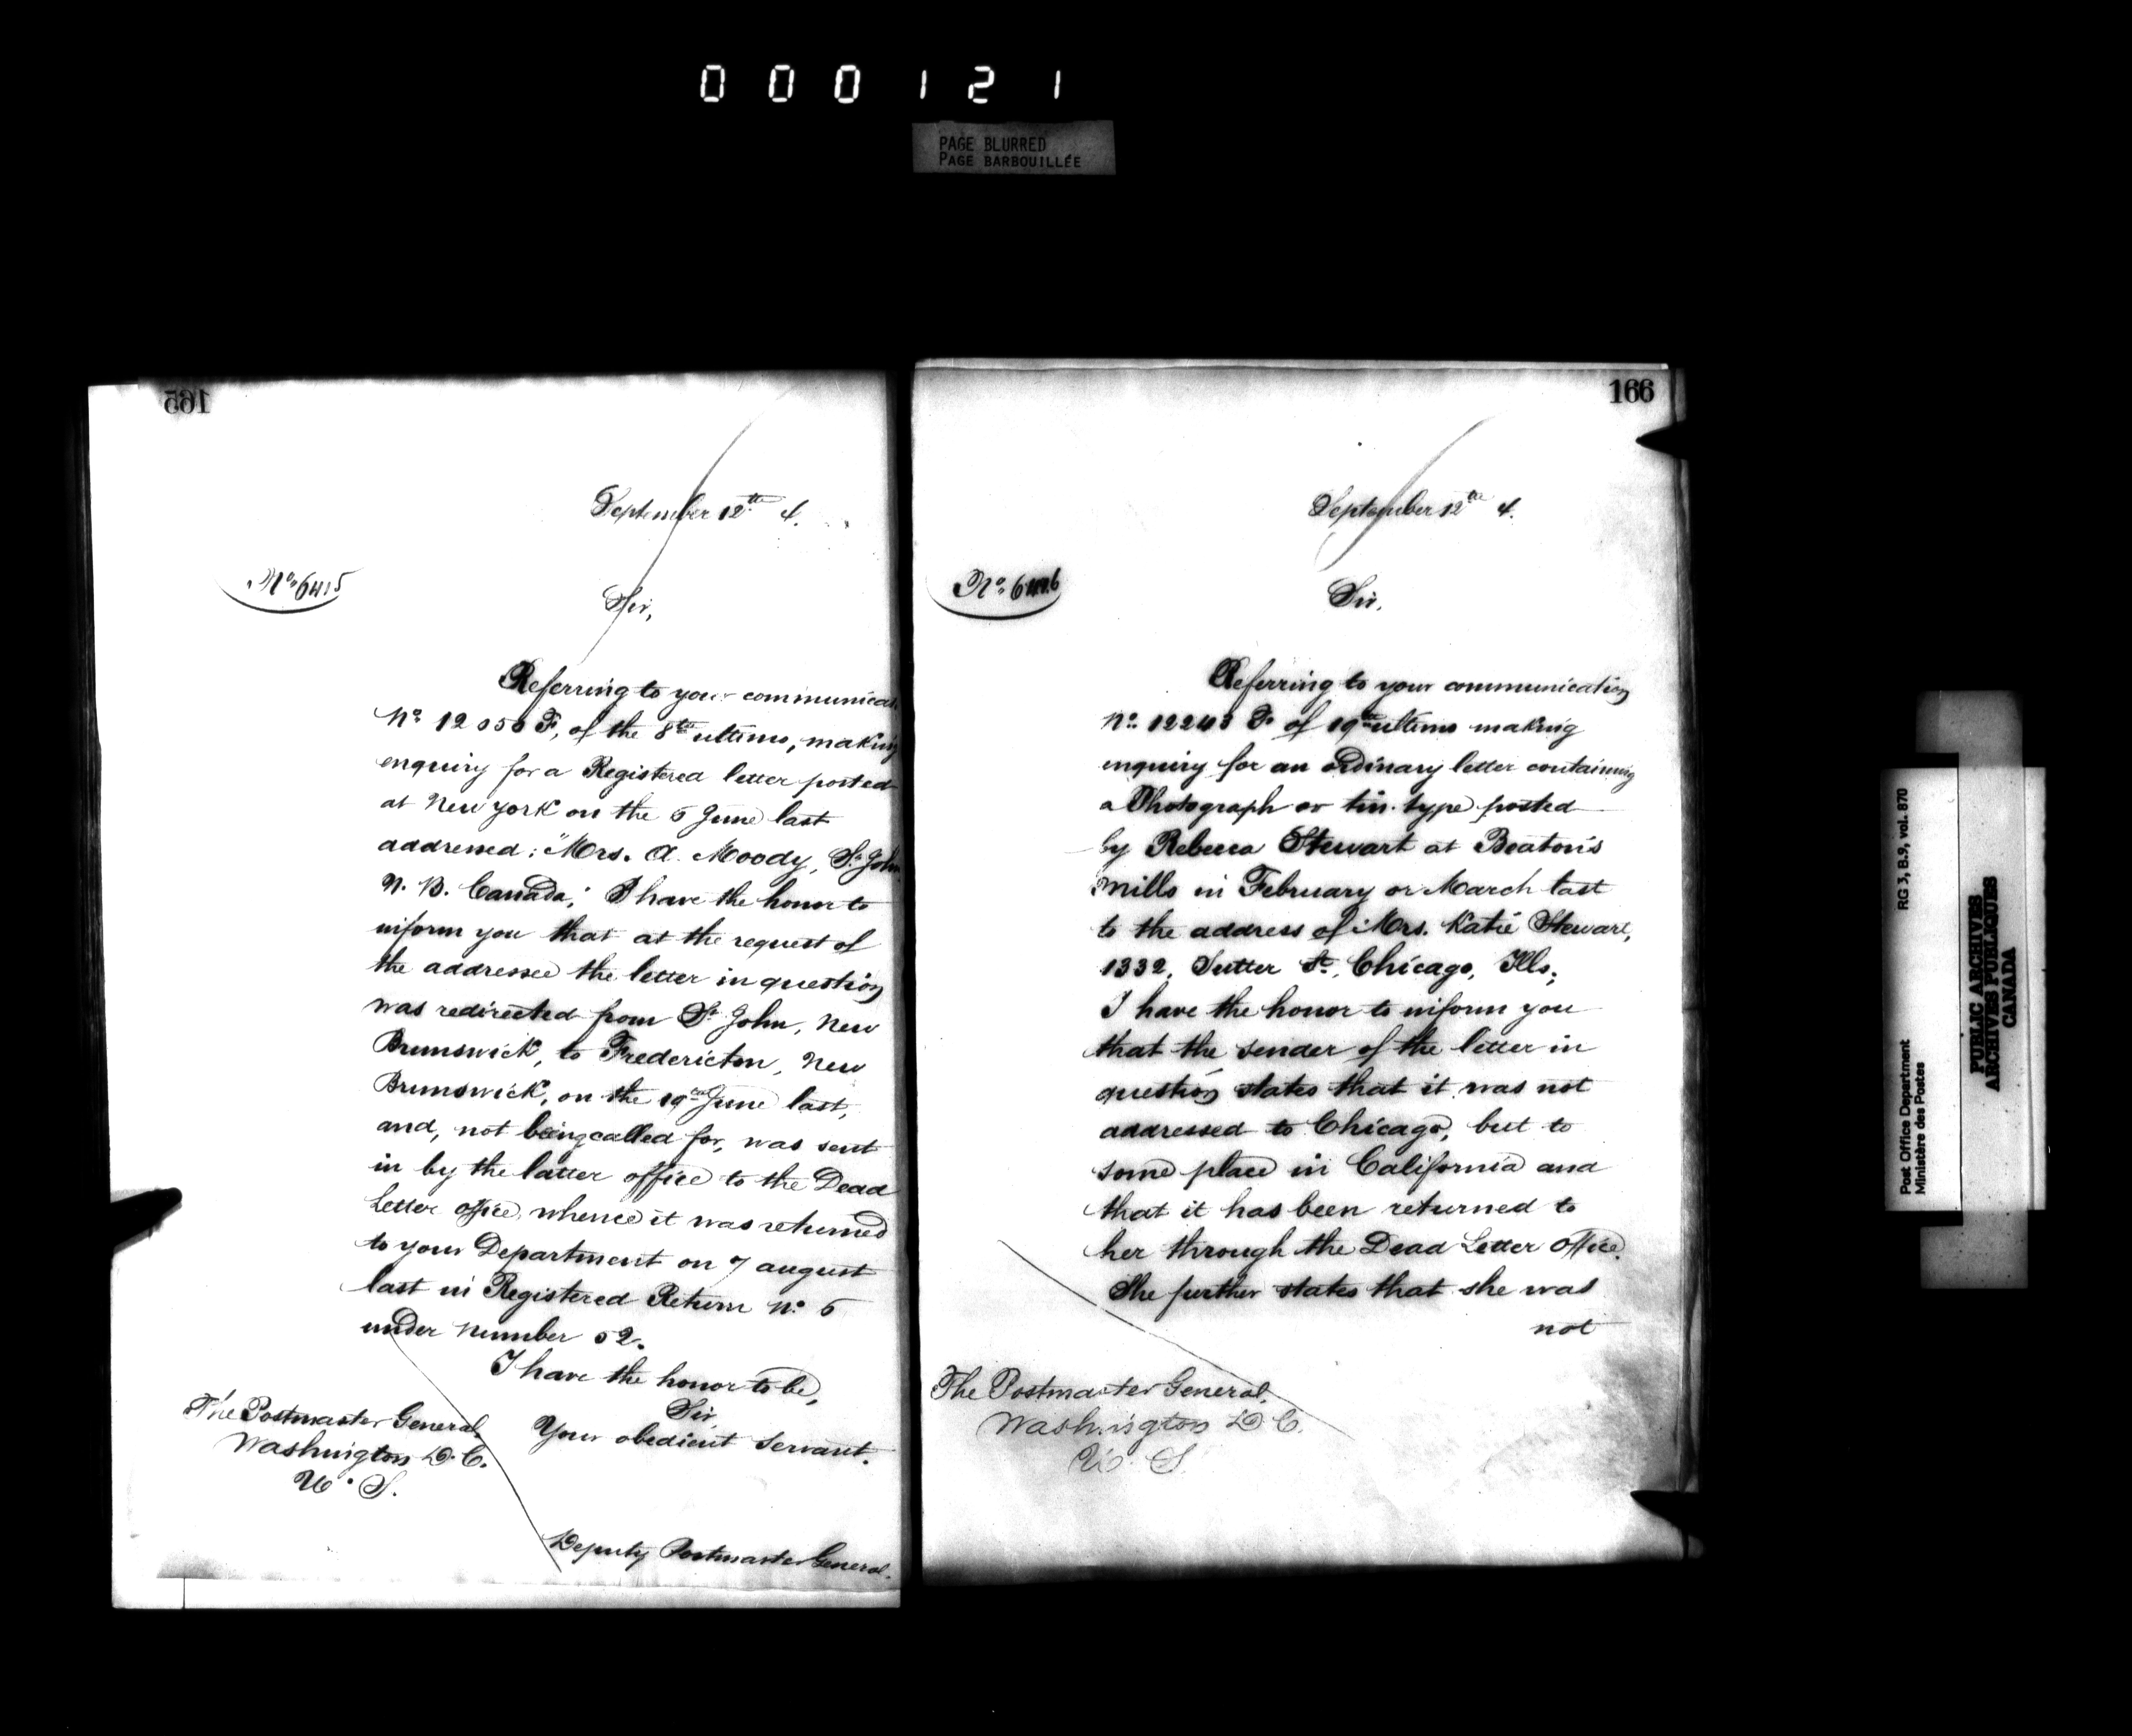 000121
PAGE BLURRED
PAGE BARBOUILLÉE
165
September 12th 4.
No. 6415
Sir,
Referring to your communicat
No. 12050 F, of the 8th ultimo, making
enquiry for a Registered letter posted
at New York on the 5 June last
addressed: "Mrs. A. Moody, St. John
N. B. Canada," I have the honor to
inform you that at the request of
the addressee the letter in question
was redirected from St. John, New
Brunswick, to Fredericton, New
Brunswick, on the 19th June last,
and, not being called for, was sent
in by the latter office to the Dead
Letter Office, whence it was returned
to your Department on 7 august
last in Registered Return No. 5
under number 52.
I have the honor to be,
Sir,
Your obedient servant.
The Postmaster General,
Washington D.C.
U. S.
Deputy Postmaster General.
166
September 12th 4.
No.
Sir,
Referring to your communication
No. 12243 F. of 19th ultimo making
enquiry for an ordinary letter containing
a Photograph or tin-type posted
by Rebecca Stewart at Beaton's
Mills in February or March last
to the address of Mrs. Katie Stewart,
1332, Sutter St., Chicago, Ills;
I have the honor to inform you
that the sender of the letter in
question states that it was not
addressed to Chicago, but to
some place in California and
that it has been returned to
her through the Dead Letter Office.
She further states that she was
not
The Postmaster General,
Washington D.C.
U. S.
Post Office Department
Ministère des Postes
RG 3, B.9, vol. 870
PUBLIC ARCHIVES
ARCHIVES PUBLIQUES
CANADA